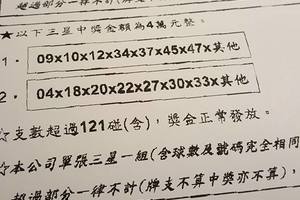 超過部分一律不計(牌支
★以下三星中獎金額為4萬元整。
1. 09x10x12x34x37x45x47x其他
2. 04x18x20x22x27x30x33x其他
☆支數超過121碰(含),獎金正常發放。
☆本公司單張三星一組(含球數及號碼完全相同
超過部分一律不計(牌支不算中獎亦不算),